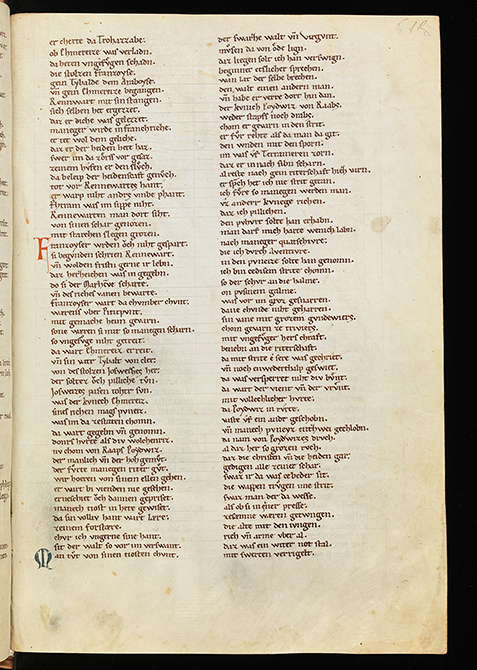 er cherte da Trohazzabe.
ob Ehmereize was verladn.
da heten vngefvgen schadn.
die stolzen franzoyse.
gein Tybalde dem Araboyse.
vn gein Ehmereze begangen.
Rennewart mit sin stangen.
sich selben het ergezzet.
dar er diche was gelezzet.
maneger wirde in franchriche.
er tet wol dem geliche.
daz er der heiden hete haz.
swer im da zorse vor gesaz.
zeinem hvfen er den slvch.
da belaip der heidenschaft genvch.
tot vor Rennewartes hant.
er warp niht andrs vmbe phant.
Ehtram was im svpe niht.
Rennewarten man dort siht.
von sinen schar genozen.
mit starchen slegen grozen.
Franzoyser wrden och niht gespart.
si begvnden sehren Rennewart.
vn wolden fristn gerne ir lebn.
daz herzeichen was in gegebn.
do si der Marhcrave scharte.
vn des riches vanen bewarte.
franzoyser wart da chvmber chvnt.
wærens vber Pitipvnt.
mit gemache heim gevarn.
sone wæren si mit so manegen scharn.
so vngefvge niht gestriten.
da wart Ehmereiz er reit.
vn sin vater Tybalt von cler.
von des stolzen Josweizes her.
der solter och pilliche svn.
Josweizes prisen tohter svn.
was der kvnech Ehmerez.
sines richen mags pvnez.
was im da zestaten chomn.
da wart gegebn vn genomn.
donrs hvrte als div wolchenriz.
nv chom von Raaps Poydwiz.
der manlich vn der hohgemvt.
der fvrte manegen riter gvt.
wir hoeren von sinem ellen gehen.
er wart bi vienden nie gesehen.
ern schiet och dannen gepriset.
manech tiost in here gewiset.
da sin volliv hant wart lære.
zeinem forstære.
chvr ich vngerne sine hant.
sit der walt so vor im verswant.
Man tvt von sinen tiosten chvnt.
der swarhe walt vn Virgvnt.
mvsen da von ode lign.
daz liegen solt ich han verswign.
beginnet etslicher sprechen.
wan lat der selbe brechen.
den walt einen andern man.
vn habe er verre dort hin dan.
der kvnech Poydwiz von Raabs.
weder stapfs noch drabs.
chom er gevarn in den strit.
er fvr rehte als da man da git.
den winden mit den sporn.
im was vf Terrameren zorn.
daz er in nach sibn scharn.
al reste nach gein riterschaft hiez varn.
er spch het ich mit strit getan.
ich fvre so manegen werden man.
vz andere kvnege richen.
daz ich pillichen.
den pvhvrt solte han erhabn.
man darf mich harte wenich labn.
nach maneger quatschivre.
die ich dvrch aventivre.
in den pvneize solte han genomn.
ich bin cedisem strite chomn.
so der schvr an die halme.
vf pvsinen galme.
was vor im groz gesnarren.
dane chvnde niht geharren.
sin vane mit grozem gvndewierz.
chom gevarn ze triviers.
mit vngefvger hers chraft.
benebn an die riterschaft.
da mit strite e sere was gechriet.
vn noch entwederthalp geswiet.
da was versperret niht div bvnt.
da wart der vient vn der vrivnt.
mit vollechlicher hvrte.
da Poydwiz in rvrte.
vaste vf ein andr geschobn.
vn manech pvneyz enthwei gechlobn.
da nam von Poydwizes drvch.
al daz her so grozen rvch.
daz die christen vn die heiden gar.
gedigen alle zeiner schar.
swaz ir da was cebeder sit.
die wappen trvgen vnt strit.
swaz man der da wesse.
als ob si in einer presse.
zesamne wæren getwngen.
die alte mit den ivngen.
rich vn arme vber al.
daz was ein witer not stal.
mit swerten verrigelt.